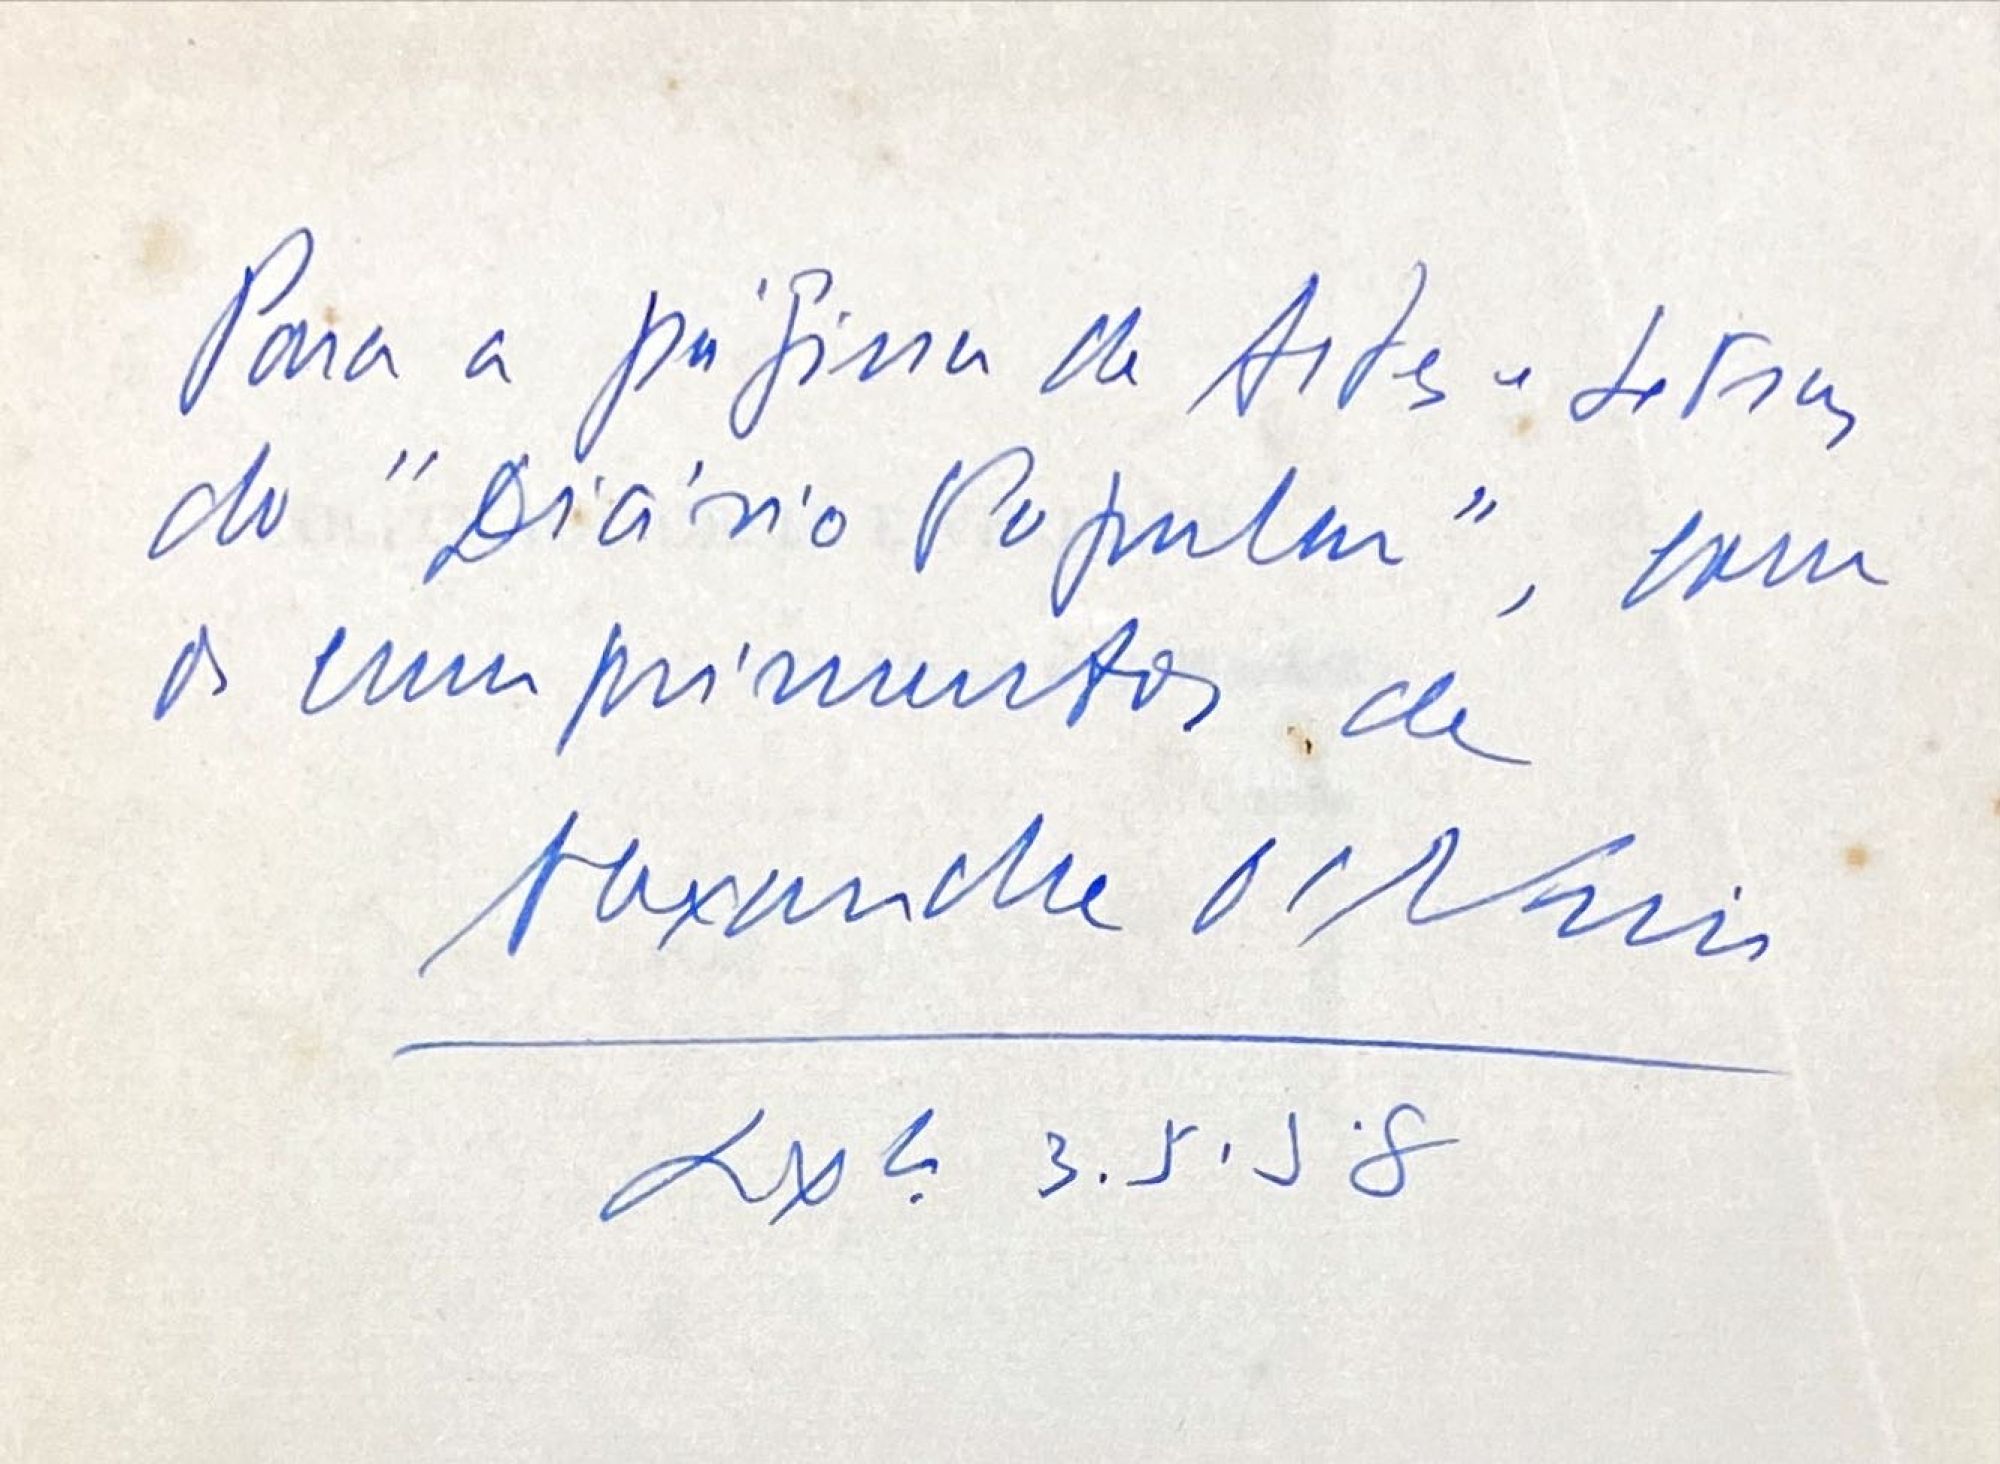 Para a página de Artes e Letras
do "Diário Popular", com
os cumprimentos de
Alexandre O'Neill
Lxª. 3.5.58